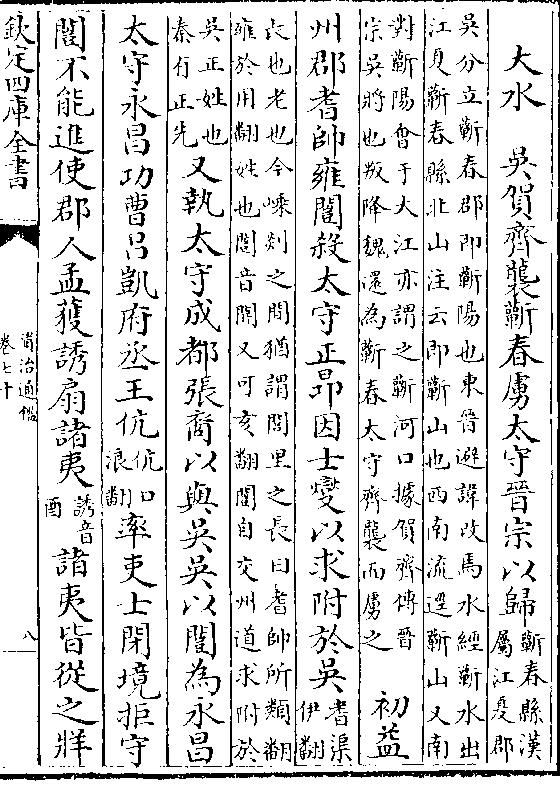 大水　吳賀齊襲蘄春虜太守晉宗以歸蘄春縣漢屬江夏郡
吳分立蘄春郡即蘄陽也東晉避諱改焉水經蘄水出江夏蘄春縣北山注云即蘄山也西南流逕蘄山又南
對蘄陽會于大江亦謂之蘄河口據賀齊傳晉宗吳將也叛降魏還為蘄春太守齊襲而虜之　初益
州郡耆帥雍闓殺太守正昂因士燮以求附於吳耆渠伊翻
長也老也今嵊剡之間猶謂閭里之長曰耆帥所類翻雍於用翻姓也闓音開又可亥翻闓自交州道求附於
吳正姓也秦有正先又執太守成都張裔以與吳吳以闓為永昌
太守永昌功曹呂凱府丞王伉伉口浪翻率吏士閉境拒守
闓不能進使郡人孟獲誘扇諸夷誘音酉諸夷皆從之牂
欽定四庫全書
資治通鑑
卷七十
八